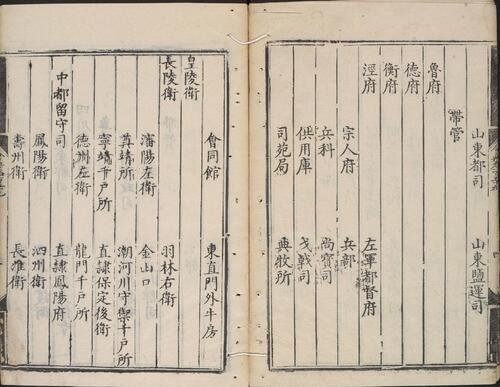 山東都司 山東鹽運司
帶管
魯府
德府
衡府
涇府 左軍都督府
宗人府 兵部
兵科 尚寶司
供用庫 戈戟司
司苑局 典牧所
會同館 東直門外牛房
皇陵衛
長陵衛 羽林右衛
瀋陽左衛 金山口
靖所 潮河川守禦千戶所
寧靖千戶所 直隷保定後衛
德州左衛 龍門千戶所
中都留守司 直隷鳳陽府
鳳陽衛 泗州衛
壽州衛 長淮衛